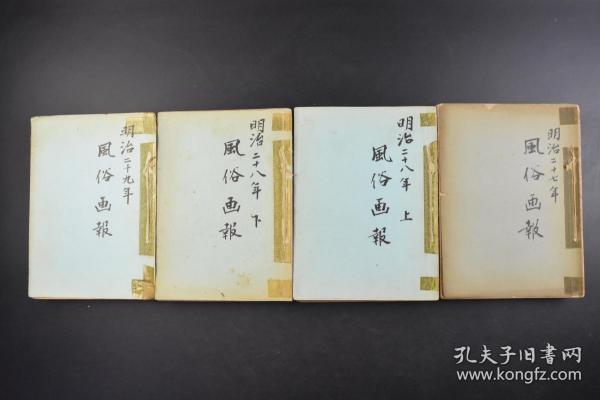 明治二十九年
風俗画報
明治二十八年 下
風俗画報
明治二十八年 上
風俗画報
明治二十七年
風俗画報
孔夫子旧书网
www.kongfz.com